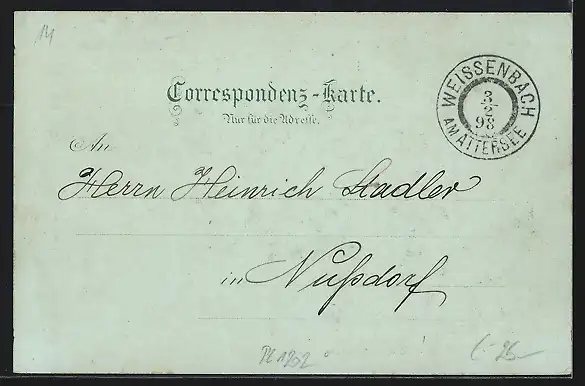 14
Correspondenz-Karte.
Nur für die Adresse.
WEISSENBACH
3
2
98
AM ATTERSEE
An
Herrn Heinrich Stadler
in Nußdorf